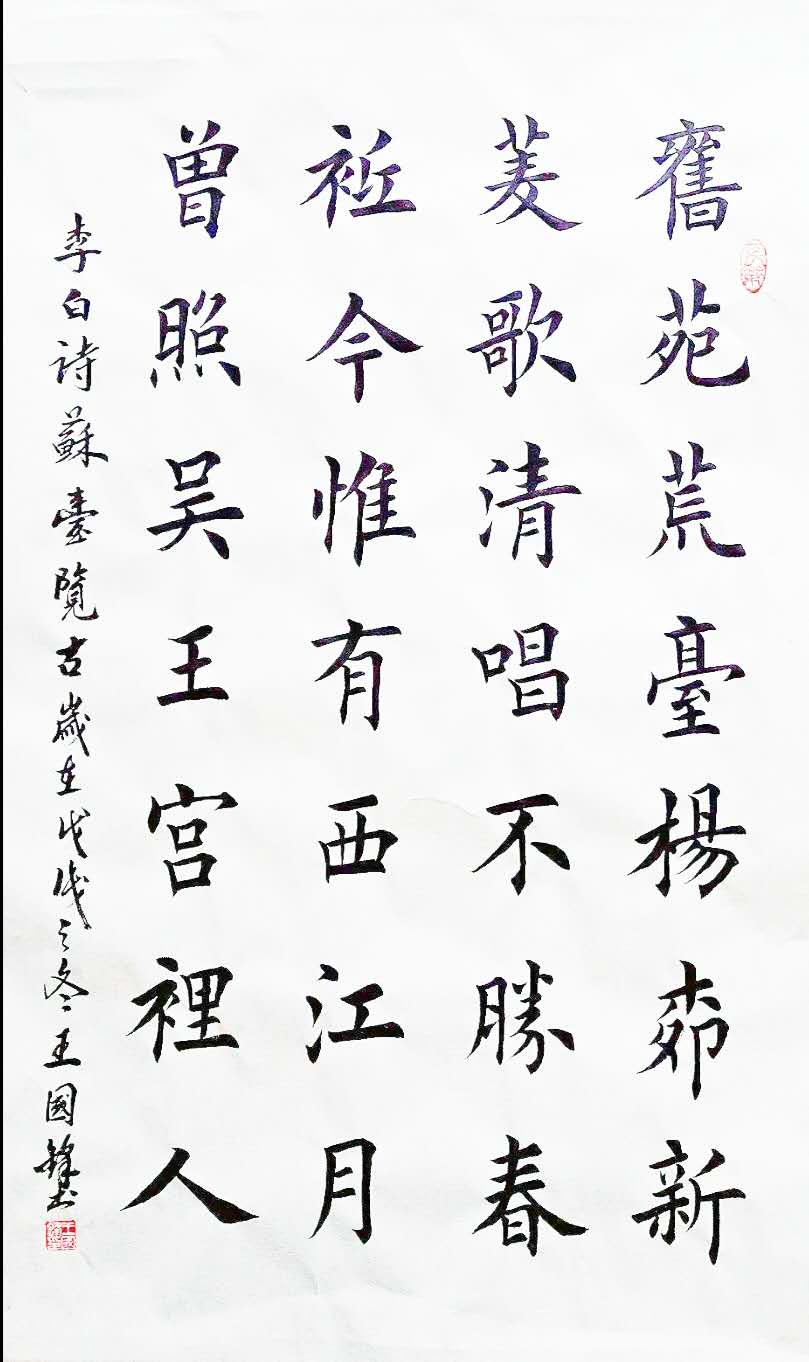 舊苑荒臺楊栁新
菱歌清唱不勝春
祗今惟有西江月
曾照吴王宫裡人
李白詩蘇臺覽古歲在戊戌之冬王國鋒书